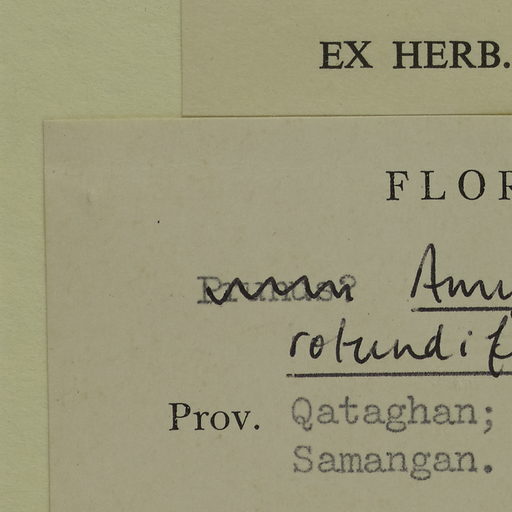 EX HERB.
FLOR
Prunus?
rotundif
Prov. Qataghan;
Samangan.